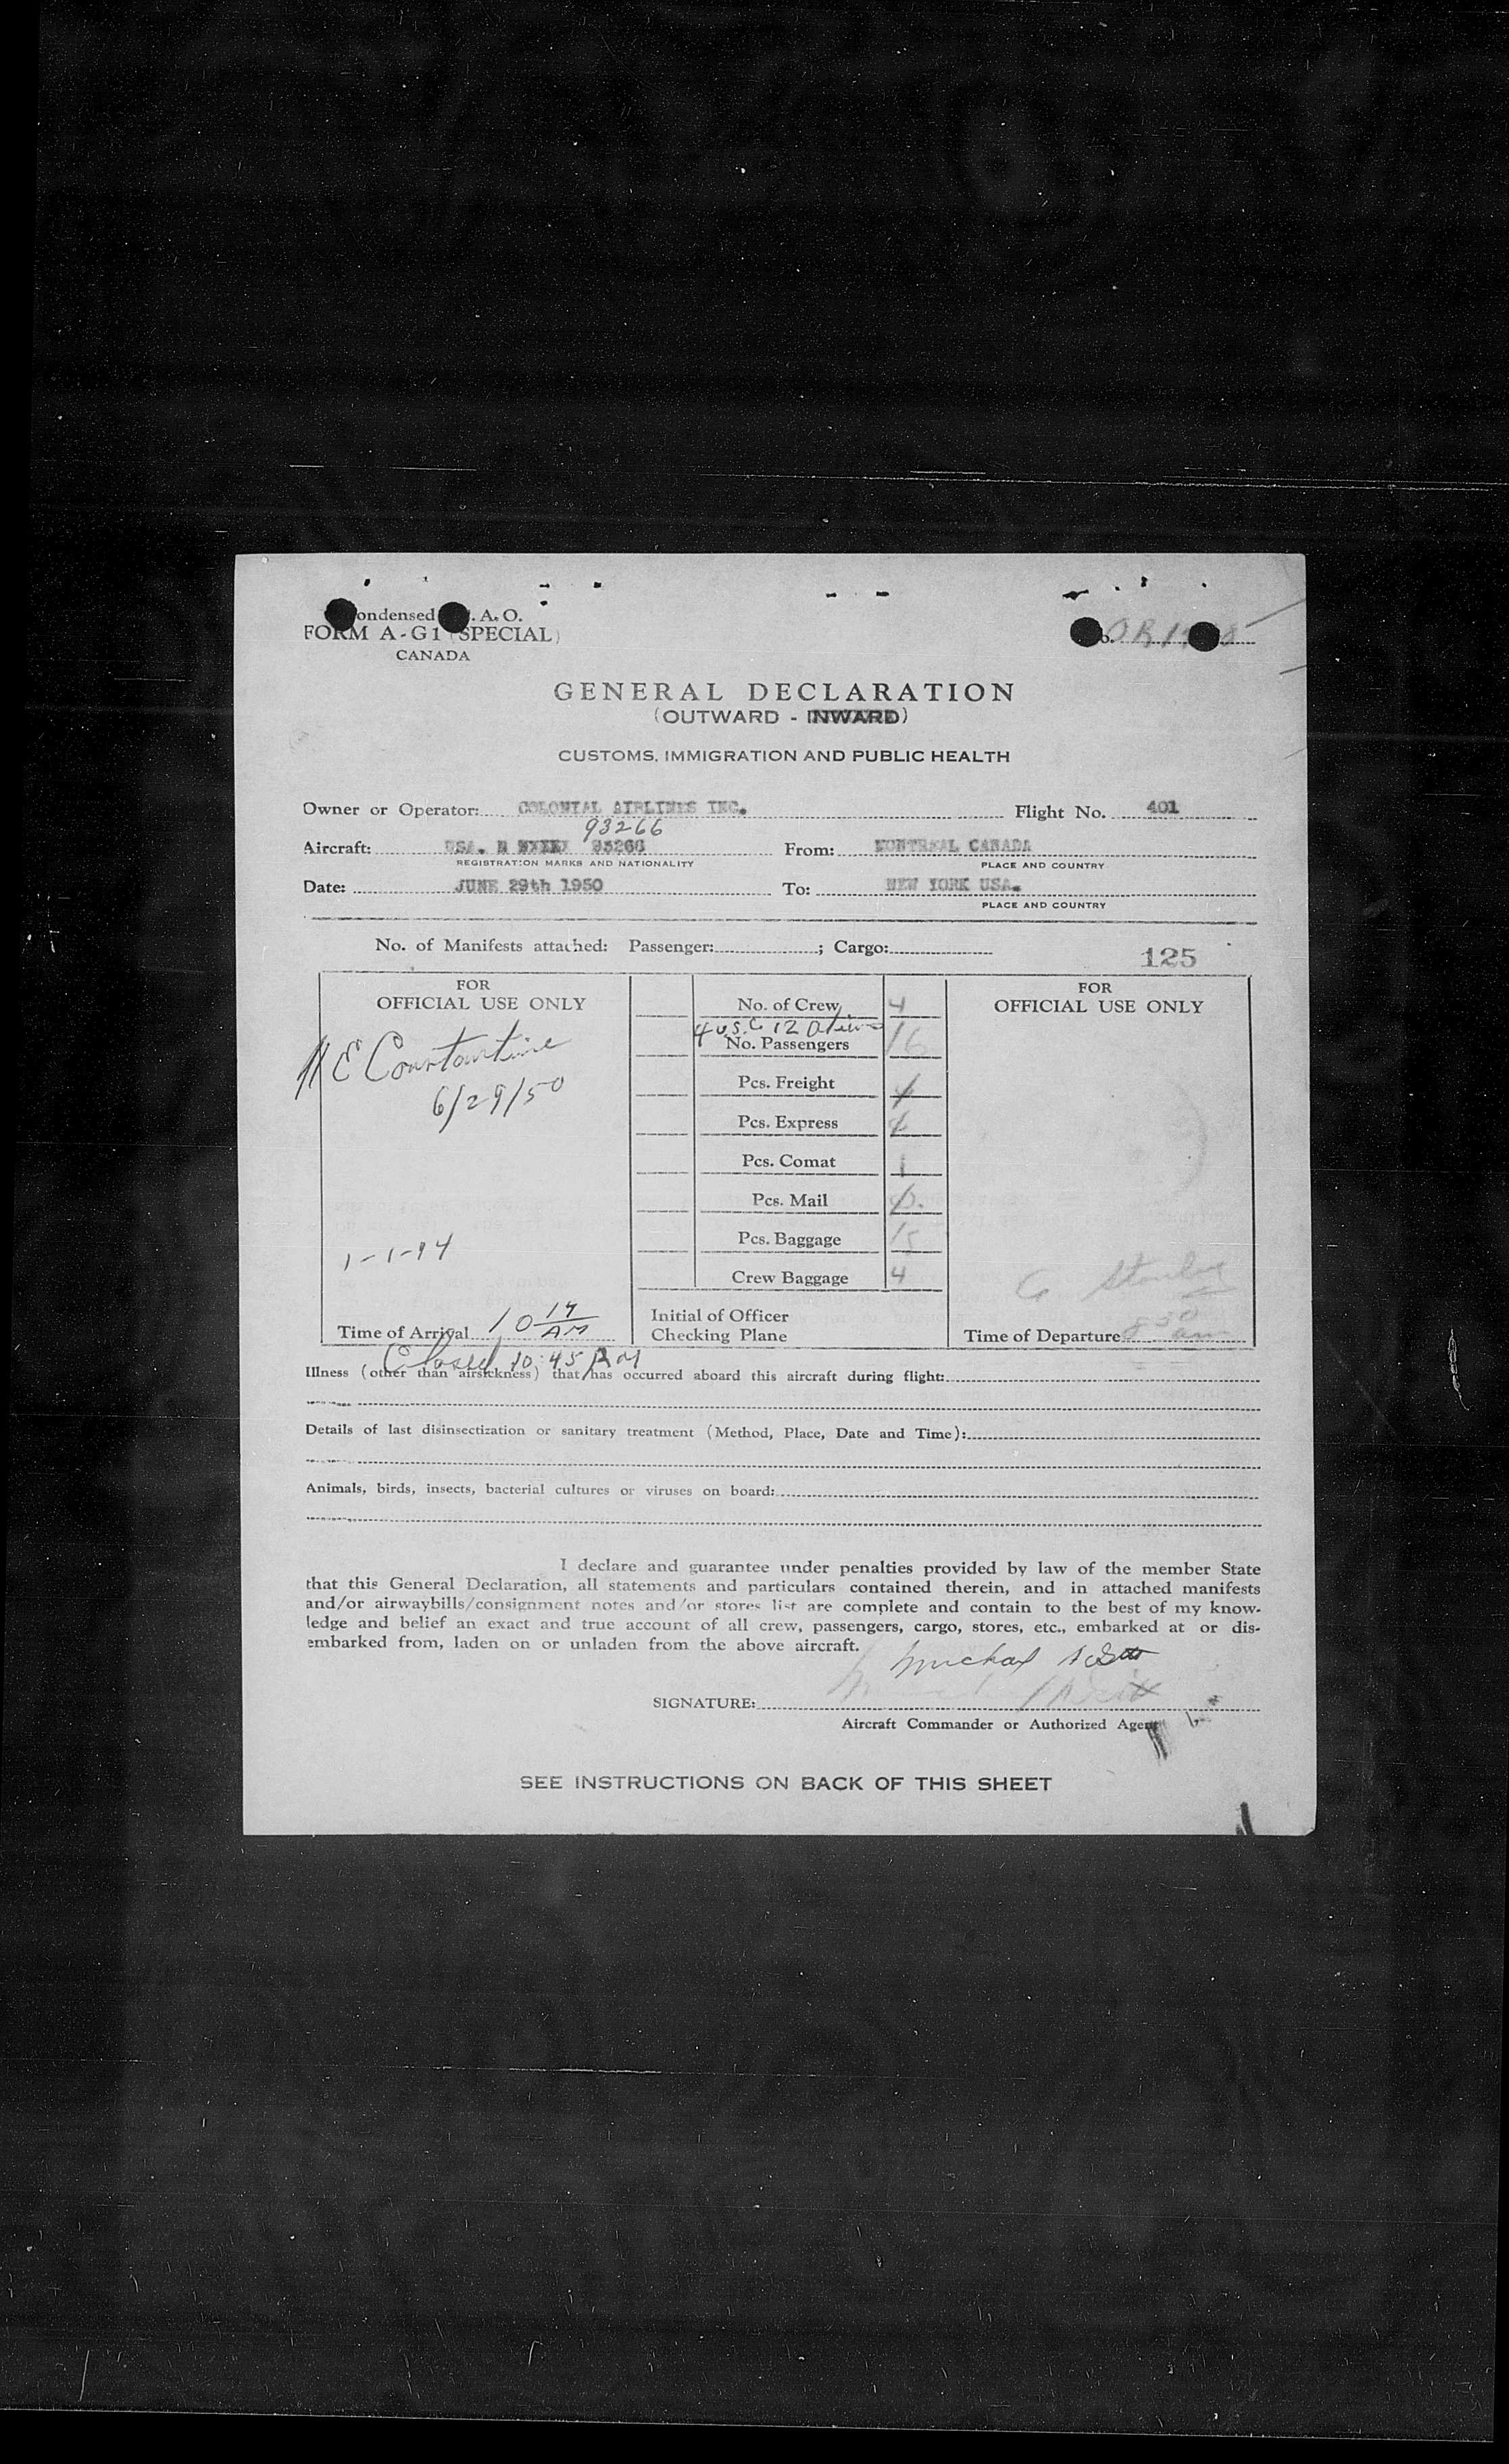 ondensed . A. O.
FORM A-G1 (SPECIAL)
CANADA
GENERAL DECLARATION
(OUTWARD - INWARD)
CUSTOMS, IMMIGRATION AND PUBLIC HEALTH
Owner or Operator: COLONIAL AIRLINES INC. Flight No. 401
93266
Aircraft: USA. N 93266 From: MONTREAL CANADA
REGISTRATION MARKS AND NATIONALITY PLACE AND COUNTRY
Date: JUNE 29th 1950 To: NEW YORK USA.
PLACE AND COUNTRY
No. of Manifests attached: Passenger: ; Cargo:
125
FOR
OFFICIAL USE ONLY
E
6/29/50
1-1-
Time of Arrival 10 14 AM
Closed 10:45 AM
No. of Crew 4
4 U.S.C 12 Aliens
No. Passengers 16
Pcs. Freight
Pcs. Express
Pcs. Comat 1
Pcs. Mail
Pcs. Baggage 15
Crew Baggage 4
Initial of Officer
Checking Plane
FOR
OFFICIAL USE ONLY
Time of Departure 8 50 am
Illness (other than airsickness) that has occurred aboard this aircraft during flight:
Details of last disinsectization or sanitary treatment (Method, Place, Date and Time):
Animals, birds, insects, bacterial cultures or viruses on board:
I declare and guarantee under penalties provided by law of the member State
that this General Declaration, all statements and particulars contained therein, and in attached manifests
and/or airwaybills/consignment notes and/or stores list are complete and contain to the best of my know-
ledge and belief an exact and true account of all crew, passengers, cargo, stores, etc., embarked at or dis-
embarked from, laden on or unladen from the above aircraft.
Michael Scott
SIGNATURE:
Aircraft Commander or Authorized Agent
SEE INSTRUCTIONS ON BACK OF THIS SHEET